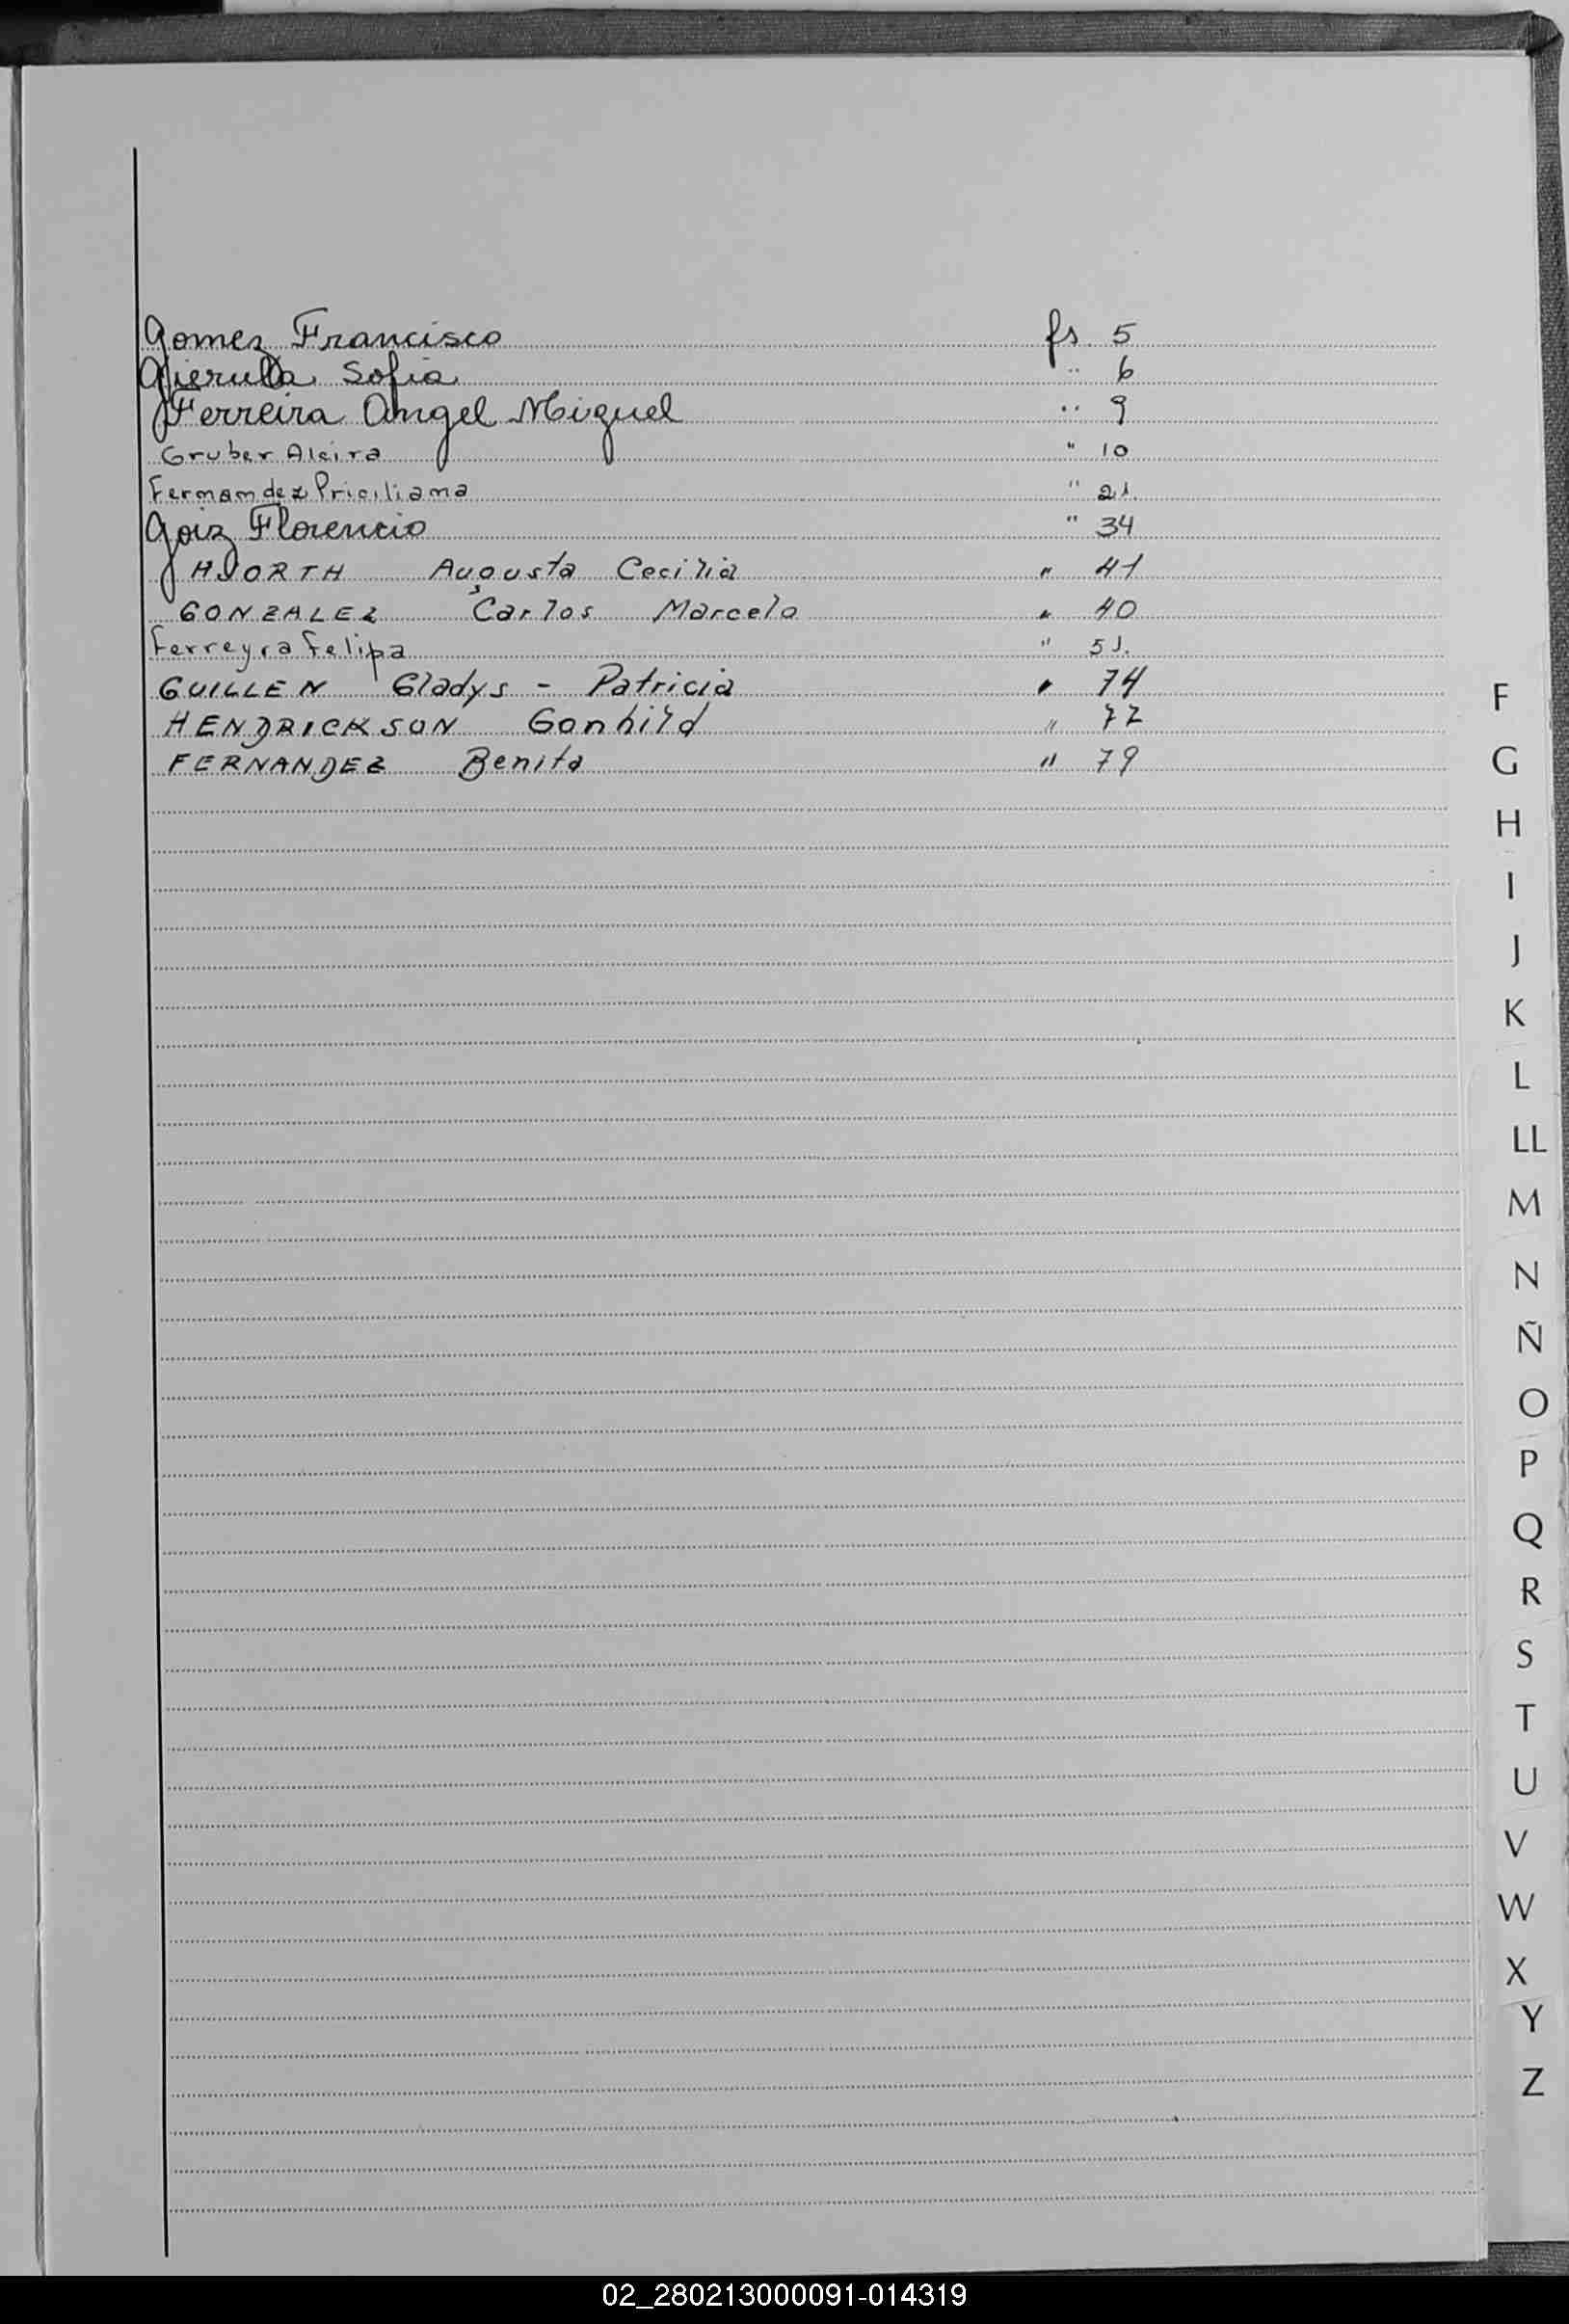 Gomez Francisco fs. 5
Gierulla Sofia " 6
Ferreira Angel Miguel " 9
Gruber Alcira " 10
Fernandez Priciliana " 21.
Goiz Florencio " 34
HJORTH Augusta Cecilia " 41
GONZALEZ Carlos Marcelo " 40
Ferreyra Felipa " 51.
GUILLEN Gladys - Patricia " 74
HENDRICKSON Gonhild " 77
FERNANDEZ Benita " 79
F
G
H
I
J
K
L
LL
M
N
Ñ
O
P
Q
R
S
T
U
V
W
X
Y
Z
02_280213000091-014319